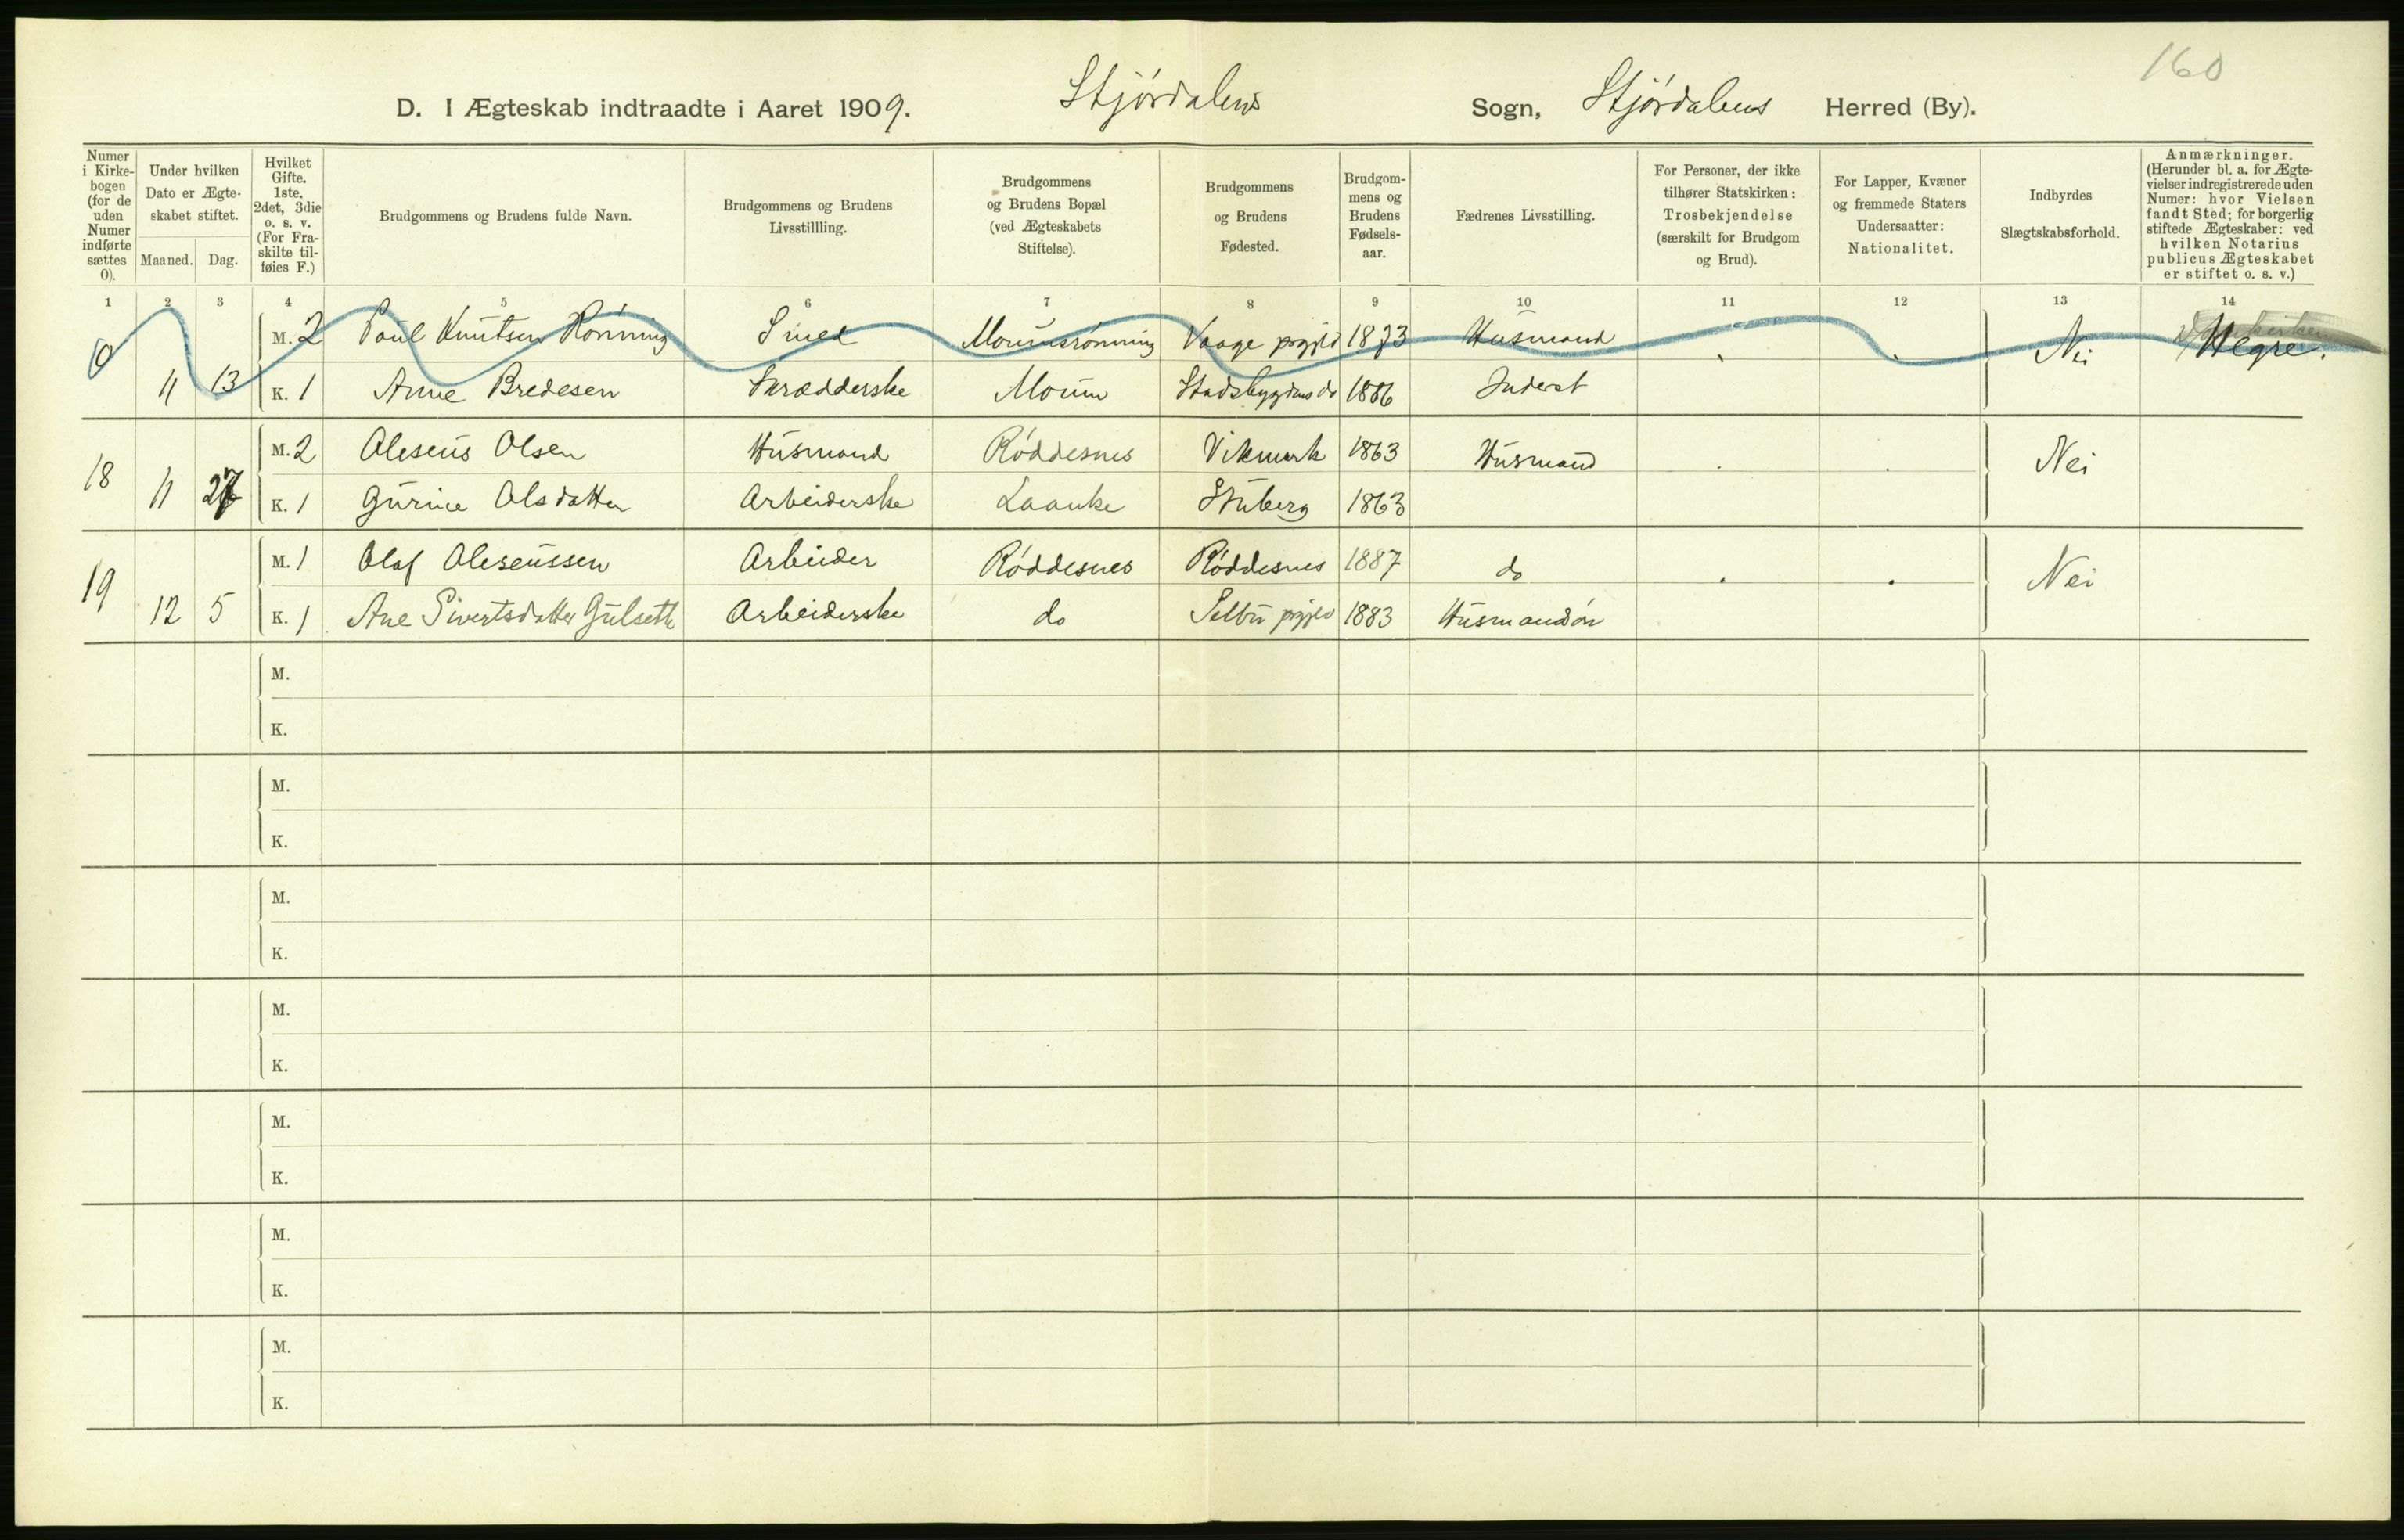 160
D. I Ægteskab indtraadte i Aaret 1909. Stjørdalens Sogn, Stjørdalens Herred (By).
Numer i Kirkebogen (for de uden Numer indførte sættes 0).
Under hvilken Dato er Ægteskabet stiftet.
Maaned. Dag.
Hvilket Gifte. 1ste, 2det, 3die o. s. v. (For Fraskilte tilføies F.)
Brudgommens og Brudens fulde Navn.
Brudgommens og Brudens Livsstillling.
Brudgommens og Brudens Bopæl (ved Ægteskabets Stiftelse).
Brudgommens og Brudens Fødested.
Brudgommens og Brudens Fødselsaar.
Fædrenes Livsstilling.
For Personer, der ikke tilhører Statskirken: Trosbekjendelse (særskilt for Brudgom og Brud).
For Lapper, Kvæner og fremmede Staters Undersaatter: Nationalitet.
Indbyrdes Slægtskabsforhold.
Anmærkninger. (Herunder bl. a. for Ægtevielser indregistrerede uden Numer: hvor Vielsen fandt Sted; for borgerlig stiftede Ægteskaber: ved hvilken Notarius publicus Ægteskabet er stiftet o. s. v.)
1 2 3 4 5 6 7 8 9 10 11 12 13 14
0 M. 2 Paul Knutsen Rønning Smed Mourunsrønning Vaage prgjld 1873 Husmand Nei Hegre.
11 13 K. 1 Anne Bredesen Skrædderske Stadsbygdens do 1886 Inderst
18 M. 2 Oleseus Olsen Husmand Røddesnes Vikmark 1863 Husmand Nei
11 27 K. 1 Gurine Olsdatter Arbeiderske Laanke Stuberg 1863
19 M. 1 Olaf Oleseussen Arbeider Røddesnes Røddesnes 1887 do Nei
12 5 K. 1 Ane Sivertsdatter Gulseth Arbeiderske do Selbu prgjld 1883 Husmandsøn
M.
K.
M.
K.
M.
K.
M.
K.
M.
K.
M.
K.
M.
K.